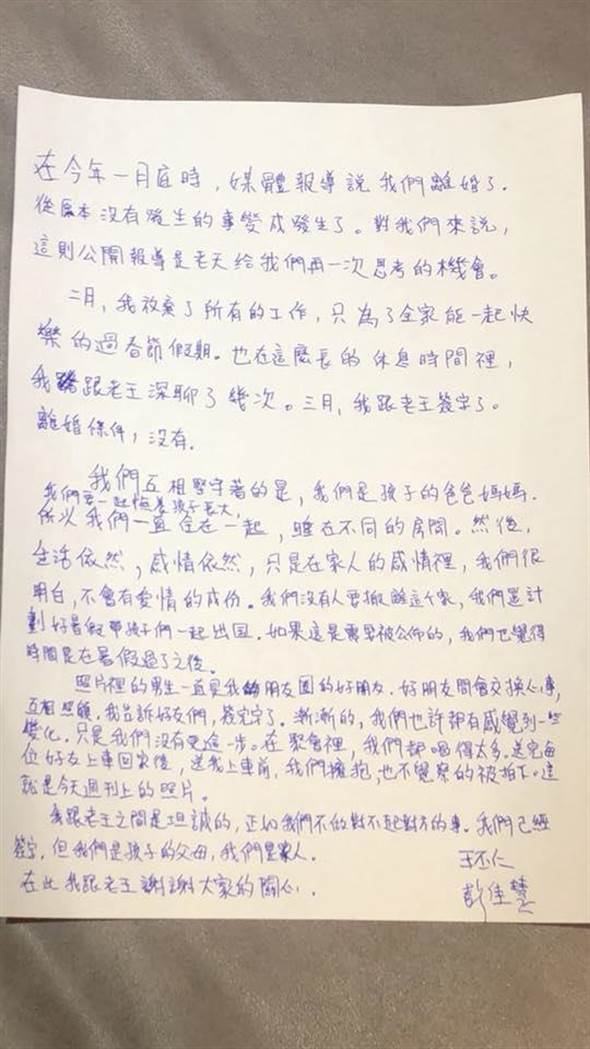 在今年一月底時，媒體報導說我們離婚了.
從原本沒有發生的事變成發生了。對我們來說，
這則公開報導是老天給我們再一次思考的機會。
二月，我放棄了所有的工作，只為了全家能一起快
樂的過春節假期。也在這麼長的休息時間裡，
我跟老王深聊了幾次。三月，我跟老王簽字了。
離婚條件，沒有.
我們互相堅守著的是，我們是孩子的爸爸媽媽.
我們要一起陪著孩子長大，
所以我們一直住在一起，睡在不同的房間。然後，
生活依然，感情依然，只是在家人的感情裡，我們很
明白，不會有愛情的成份。我們沒有人要搬離這個家，我們還計
劃好暑假帶孩子們一起出国.如果這是需要被公佈的，我們也覺得
時間是在暑假過了之後。
照片裡的男生一直是我朋友圈的好朋友.好朋友間會交換心事，
互相照顧.我告訴好友們，簽完字了.漸漸的，我們也許都有感覺到一些
變化.只是我們沒有更進一步。在聚會裡，我們都喝得太多。送完每
位好友上車回家後，送我上車前，我們擁抱，也不覺察的被拍下。這
就是今天週刊上的照片。
我跟老王之間是坦誠的，正如我們不做對不起對方的事。我們已經
簽字，但我們是孩子的父母，我們是家人.
在此我跟老王謝謝大家的關心.
王丕仁
彭佳慧